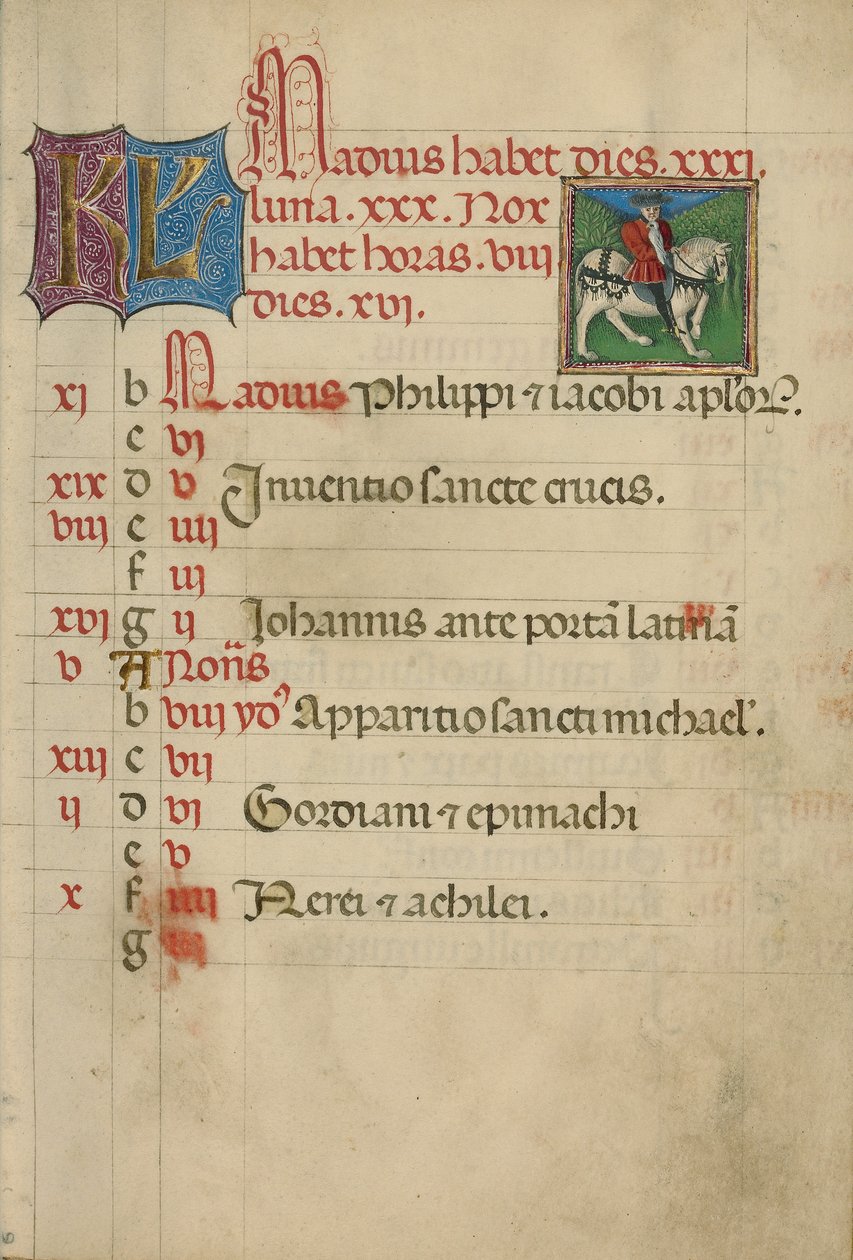 KL Madius habet dies. xxxi.
luna. xxx. Nox
habet horas. viii
dies. xvi.
xi b Madius Philippi ⁊ iacobi aplōꝝ.
c vi
xix d v Inuentio sancte crucis.
viii e iiii
f iii
xvi g ii Iohannis ante portā latinā
v A Noñs
b viii ydꝰ Apparitio sancti michael'.
xiii c vii
ii d vi Gordiani ⁊ epimachi
e v
x f iiii Nerei ⁊ achilei.
g iii